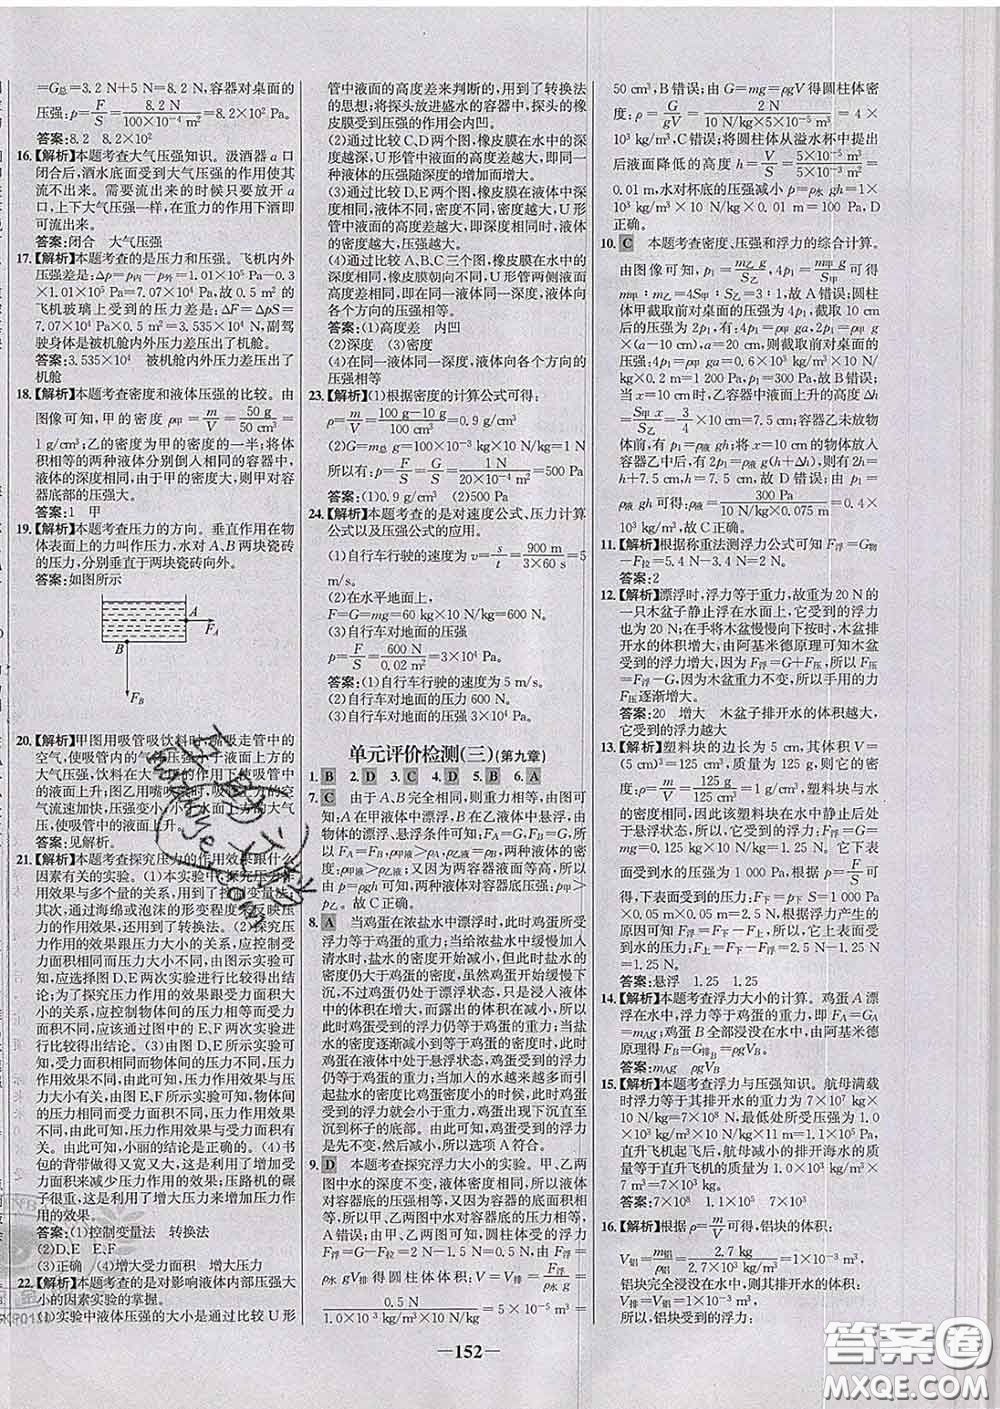 =G总=3.2 N+5 N=8.2 N,容器对桌面的
压强:p=F/S=8.2 N/(100×10⁻⁴ m²)=8.2×10² Pa。
答案:8.2 8.2×10²
16.【解析】本题考查大气压强知识。汲酒器 a 口
闭合后,酒水底面受到大气压强的作用使其
流不出来。需要流出来的时候只要放开 a
口,上下大气压强一样,在重力的作用下酒即
可流出来。
答案:闭合 大气压强
17.【解析】本题考查的是压力和压强。飞机内外
压强差是:Δp=p内-p外=1.01×10⁵ Pa-0.3
×1.01×10⁵ Pa=7.07×10⁴ Pa,故 0.5 m² 的
飞机玻璃上受到的压力差是:ΔF=ΔpS=
7.07×10⁴ Pa×0.5 m²=3.535×10⁴ N,副驾
驶身体是被机舱内外压力差压出了机舱。
答案:3.535×10⁴ 被机舱内外压力差压出了
机舱
18.【解析】本题考查密度和液体压强的比较。由
图像可知,甲的密度 ρ甲=m/V=50 g/50 cm³=
1 g/cm³;乙的密度为甲的密度的一半;将体
积相等的两种液体分别倒入相同的容器中,
液体的深度相同,由于甲的密度大,故甲对容
器底部的压强大。
答案:1 甲
19.【解析】本题考查压力的方向。垂直作用在物
体表面上的力叫作压力,水对 A、B 两块瓷砖
的压力,分别垂直于两块瓷砖向外。
答案:如图所示
A
FA
B
FB
20.【解析】甲图用吸管吸饮料时,嘴吸走管中的
空气,使吸管内的气体压强小于外界大气压
强,饮料在大气压强的作用下被压入管内,使
液面上升;图乙用嘴吹气时,吸管上方的空
气流速加快,压强变小,小于水面上方的大气
压,使吸管中的液面上升。
答案:见解析。
21.【解析】本题考查探究压力的作用效果跟什么
因素有关的实验。(1)本实验中,探究压力作
用效果与多个量的关系,用到了控制变量法;
通过海绵或泡沫的形变程度来反映压
力的作用效果,还用到了转换法。(2)探究压
力作用的效果跟压力大小的关系,应控制受
力面积相同而压力大小不同,由图示实验可
知,应选择图 D、E 两次实验进行比较得出结
论;为了探究压力作用的效果与受力面积大
小的关系,应控制物体间的压力相等而受力
面积不同,应该通过图中的 E、F 两次实验
进行比较得出结论。(3)由图 D、E 所示实验可
知,受力面积相同而物体间的压力不同,压力
作用的效果不同,由此可知,压力作用效果与压
力大小有关,由图 E、F 所示实验可知,物体间的
压力相同而受力面积不同,压力的作用效果不
同,由此可知,压力作用的效果与受力面积大小
有关,由此可知,小丽的结论是正确的。(4)书
包的背带做得又宽又大,这是通过增大受力面
积来减小压力对人体的作用效果;压路机的碾
子很重,这是通过增大压力来增加压力的作
用的效果。
答案:(1)控制变量法 转换法
(2)D、E E、F
(3)正确 (4)增大受力面积 增大压力
22.【解析】本题考查的是对影响液体内部压强大
小的因素实验的掌握。
(1)实验中液体压强的大小是通过比较 U 形
管中液面的高度差来判断的,用到了转换法
的思想;将探头放进盛水的容器中,探头的橡
皮膜受到压强的作用会内凹。
(2)通过比较 B、C 两个图,橡皮膜在水中的深度
不同,U 形管中液面的高度差不同,深度越大,U
形管中液面的高度差越大,由此可知,同一种液体的压强随深度的增加而增大。
(3)通过比较 D、E 两个图,橡皮膜在液体中的深
度相同,液体不同,密度不同,密度越大,U 形
管中液面的高度差越大,由此可知,液体压强
与液体密度有关,在深度相同时,液体的密
度越大,压强越大。
(4)通过比较 A、B、C 三个图,橡皮膜在水中的
深度相同,橡皮膜朝向不同,U 形管两侧液面
高度差相同,由此可知,在同一深度,液体向
各个方向的压强相等。
答案:(1)高度差 内凹
(2)深度 (3)密度
(4)在同一液体的同一深度,液体向各个方向
的压强相等
23.【解析】(1)根据密度的计算公式可得:
ρ=m/V=(100 g-10 g)/(100 cm³)=0.9 g/cm³
(2)G=m总g=100×10⁻³ kg×10 N/kg=1 N
所以有:p=F/S=G/S=1 N/(20×10⁻⁴ m²)=500 Pa
答案:(1)0.9 g/cm³ (2)500 Pa
24.【解析】本题考查的是对速度公式、压力计算
公式以及压强公式的应用。
(1)自行车行驶的速度为 v=s/t=900 m/(3×60 s)=5
m/s。
(2)在水平地面上,
F=G=mg=60 kg×10 N/kg=600 N。
(3)自行车对地面的压强
p=F/S=600 N/0.02 m²=3×10⁴ Pa。
答案:(1)自行车行驶的速度为 5 m/s。
(2)自行车对地面的压力 600 N。
(3)自行车对地面的压强 3×10⁴ Pa。
单元评价检测(三)(第九章)
1. B 2. D 3. C 4. D 5. B 6. A
7. C 由于 A、B 完全相同,则重力相等,由图可
知:A 在甲液体中漂浮,B 在乙液体中悬浮,由
物体的漂浮、悬浮条件可知:FA=G,FB=G,所
以 FA=FB,ρ甲液>ρ物,ρ乙液=ρ物,所以,
ρ甲液>ρ乙液;又因为两容器液面等高,所以
由 p=ρgh 可知,两种液体对容器底压强:p甲>
p乙。故 C 正确。
8. A 当鸡蛋在浓盐水中漂浮时,此时鸡蛋所受
浮力等于鸡蛋的重力;当给浓盐水中缓慢加入
清水时,盐水的密度开始减小,由于盐水的密度
大于鸡蛋的密度时,虽然盐水的密度在减小,但
是鸡蛋仍处于漂浮状态,只是浸入液体中的体
积在增大,而露出水面的体积在减小,所以
此时鸡蛋受到的浮力仍等于鸡蛋的重力;当盐
水的密度逐渐减小到等于鸡蛋的密度时,此时
鸡蛋在液体中处于悬浮状态,鸡蛋受到的浮力
仍等于鸡蛋的重力;当加入的水越来越多时就
引起盐水的密度比鸡蛋密度小的时候,此时鸡
蛋受到的浮力就会小于重力,鸡蛋就会下沉直
至沉到杯子的底部。由此可知,鸡蛋受到的浮
力是先不变,然后减小,所以选项 A 符合。
9. D 本题考查探究浮力大小的实验。甲、乙两
图中水的深度不变,液体密度相同,所以,液
体对容器底的压强相等,因为容器的底面积相
同,故甲、乙两图中水对容器底的压力相等,
A 错误;由甲、丙两图可得,圆柱体受的浮
力:F浮=G-F=2 N-1.5 N=0.5 N,由 F浮=
ρ水gV排得圆柱体体积:V=V排=F浮/(ρ水g)=
0.5 N/(1.0×10³ kg/m³×10 N/kg)=5×10⁻⁵ m³=
50 cm³,B 错误;由 G=mg=ρgV 得圆柱体密
度:ρ=G/(gV)=2 N/(10 N/kg×5×10⁻⁵ m³)=4×
10³ kg/m³,C 错误;将圆柱体从溢水杯中提出
后液面下降的高度 h=V/S=(5×10⁻⁵ m³)/(5×10⁻³ m²)=
0.01 m,水对杯底的压强减小 p=ρ水gh=1×
10³ kg/m³×10 N/kg×0.01 m=100 Pa,D
正确。
10. C 本题考查密度、压强和浮力的综合计算。
由图像可知,p₁=m乙g/S乙,4p₁=m甲g/S甲可得
m甲∶m乙=4S甲∶S乙=3∶1,故 A 错误;圆柱
体甲截取前对桌面的压强为 4p₁,截取 10 cm
后的压强为 2p₁,有:4p₁=ρ甲ga,2p₁=ρ甲g
×(a-10 cm),a=20 cm,则截取前对桌面的
压强:4p₁=ρ甲ga=0.6×10³ kg/m³×10 N/kg×
0.2 m=1 200 Pa,p₁=300 Pa,故 B 错误;
当 x=10 cm 时,乙容器中液面上升的高度 Δh
=S甲x/S乙=3/4×10 cm=7.5 cm;容器乙未放物
体前,有 p₁=ρ液gh;将 x=10 cm 的物体放入
容器乙中后,有 2p₁=ρ液g(h+Δh),则 2h=
h+7.5 cm,h=7.5 cm,故 D 错误;由 p₁=
ρ液gh 可得:ρ液=300 Pa/(10 N/kg×0.075 m)=0.4×
10³ kg/m³,故 C 正确。
11.【解析】根据称重法测浮力公式可知 F浮=G物
-F拉=5.4 N-3.4 N=2 N。
答案:2
12.【解析】漂浮时,浮力等于重力,故重为 20 N 的
一只木盆子静止浮在水面上,它受到的浮力
为 20 N;在手将木盆慢慢向下按时,木盆排
开水的体积增大,由阿基米德原理可知木盆
受到的浮力增大,因 F浮=G+F压,所以 F压
=F浮-G,因木盆重力不变,所以手用的力
F压逐渐增大。
答案:20 增大 木盆子排开水的体积越大,
它受到的浮力越大
13.【解析】塑料块的边长为 5 cm,其体积 V=
(5 cm)³=125 cm³,质量为 125 g,密度 ρ=
m/V=125 g/125 cm³=1 g/cm³,塑料块与水的
密度相等,所以塑料块在水中静止后处于
悬浮状态,受到的浮力等于重力,F浮=G=
mg=0.125 kg×10 N/kg=1.25 N。它下表面
受到水的压强为 1 000 Pa,由 p=F/S可得,
下表面受到的压力:F下=p下S=1 000 Pa
×0.05 m×0.05 m=2.5 N,根据浮力产生的
原因可得,F浮=F下-F上,所以它上表面受
到水的压力:F上=F下-F浮=2.5 N-1.25 N
=1.25 N。
答案:悬浮 1.25 1.25
14.【解析】本题考查浮力大小的计算。鸡蛋 A 漂
浮在水中,浮力等于鸡蛋的重力,即 FA=GA=
mAg;鸡蛋 B 全部浸没在水中,由阿基米德
原理得 FB=G排B=ρgVB。
答案:mAg ρgVB
15.【解析】本题考查浮力与压强知识。航母满载
时浮力等于其排开水的重力为 7×10⁷
kg×10 N/kg=7×10⁸ N,最低处所受压强为 1.0
×10³ kg/m³×10 N/kg×11 m=1.1×10⁵ Pa,
直升飞机起飞后,航母减小的排开海水的重力等
于直升飞机的重力,即为 1.0×10³ kg/m³×10
N/kg×0.7 m³=7×10³ N。
答案:7×10⁸ 1.1×10⁵ 7×10³
16.【解析】根据 ρ=m/V可得,铝块的体积:
V铝=m铝/ρ铝=2.7 kg/(2.7×10³ kg/m³)=1×10⁻³ m³
铝块完全浸没在水中,则其排开水的体积:
V排=V铝=1×10⁻³ m³
所以,铝块受到的浮力:
—152—
答案圈
MXQE.COM